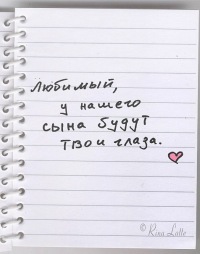 Любимый,
у нашего
сына будут
твои глаза.
© Rina Lolle